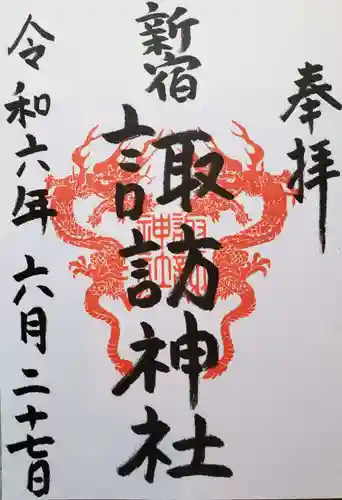 奉拝
新宿
諏訪神社
諏訪
神社
令和六年 六月二十七日